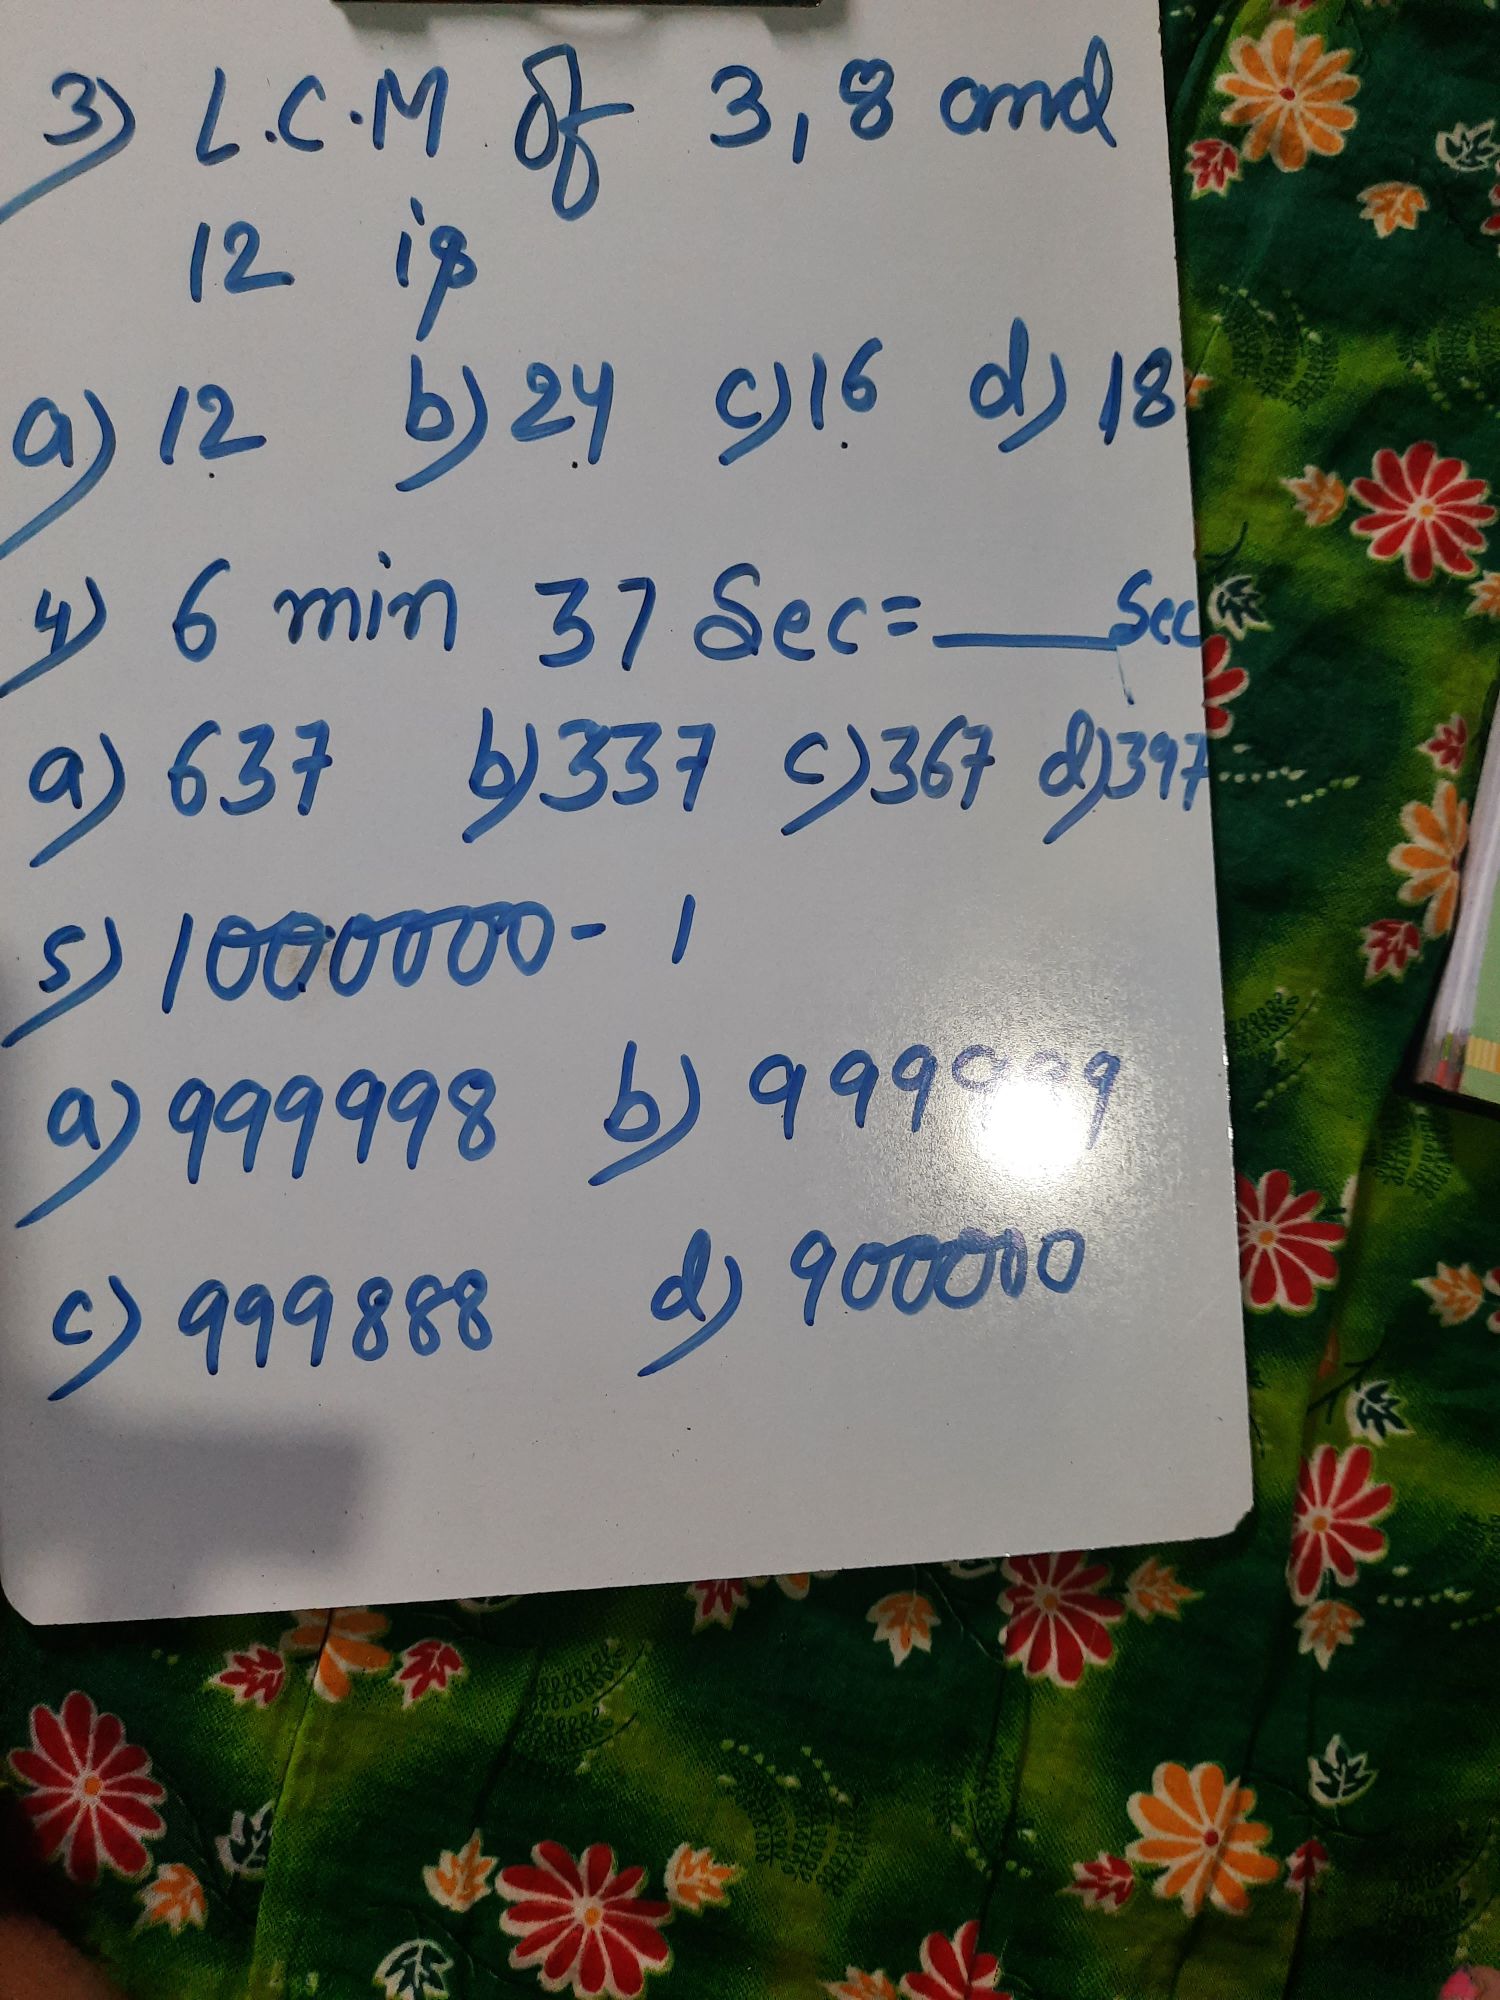 3) L.C.M of 3, 8 and
12 is
a) 12 b) 24 c) 16 d) 18
4) 6 min 37 Sec = ____ Sec
a) 637 b) 337 c) 367 d) 397
5) 1000000 - 1
a) 999998 b) 999999
c) 999888 d) 900000